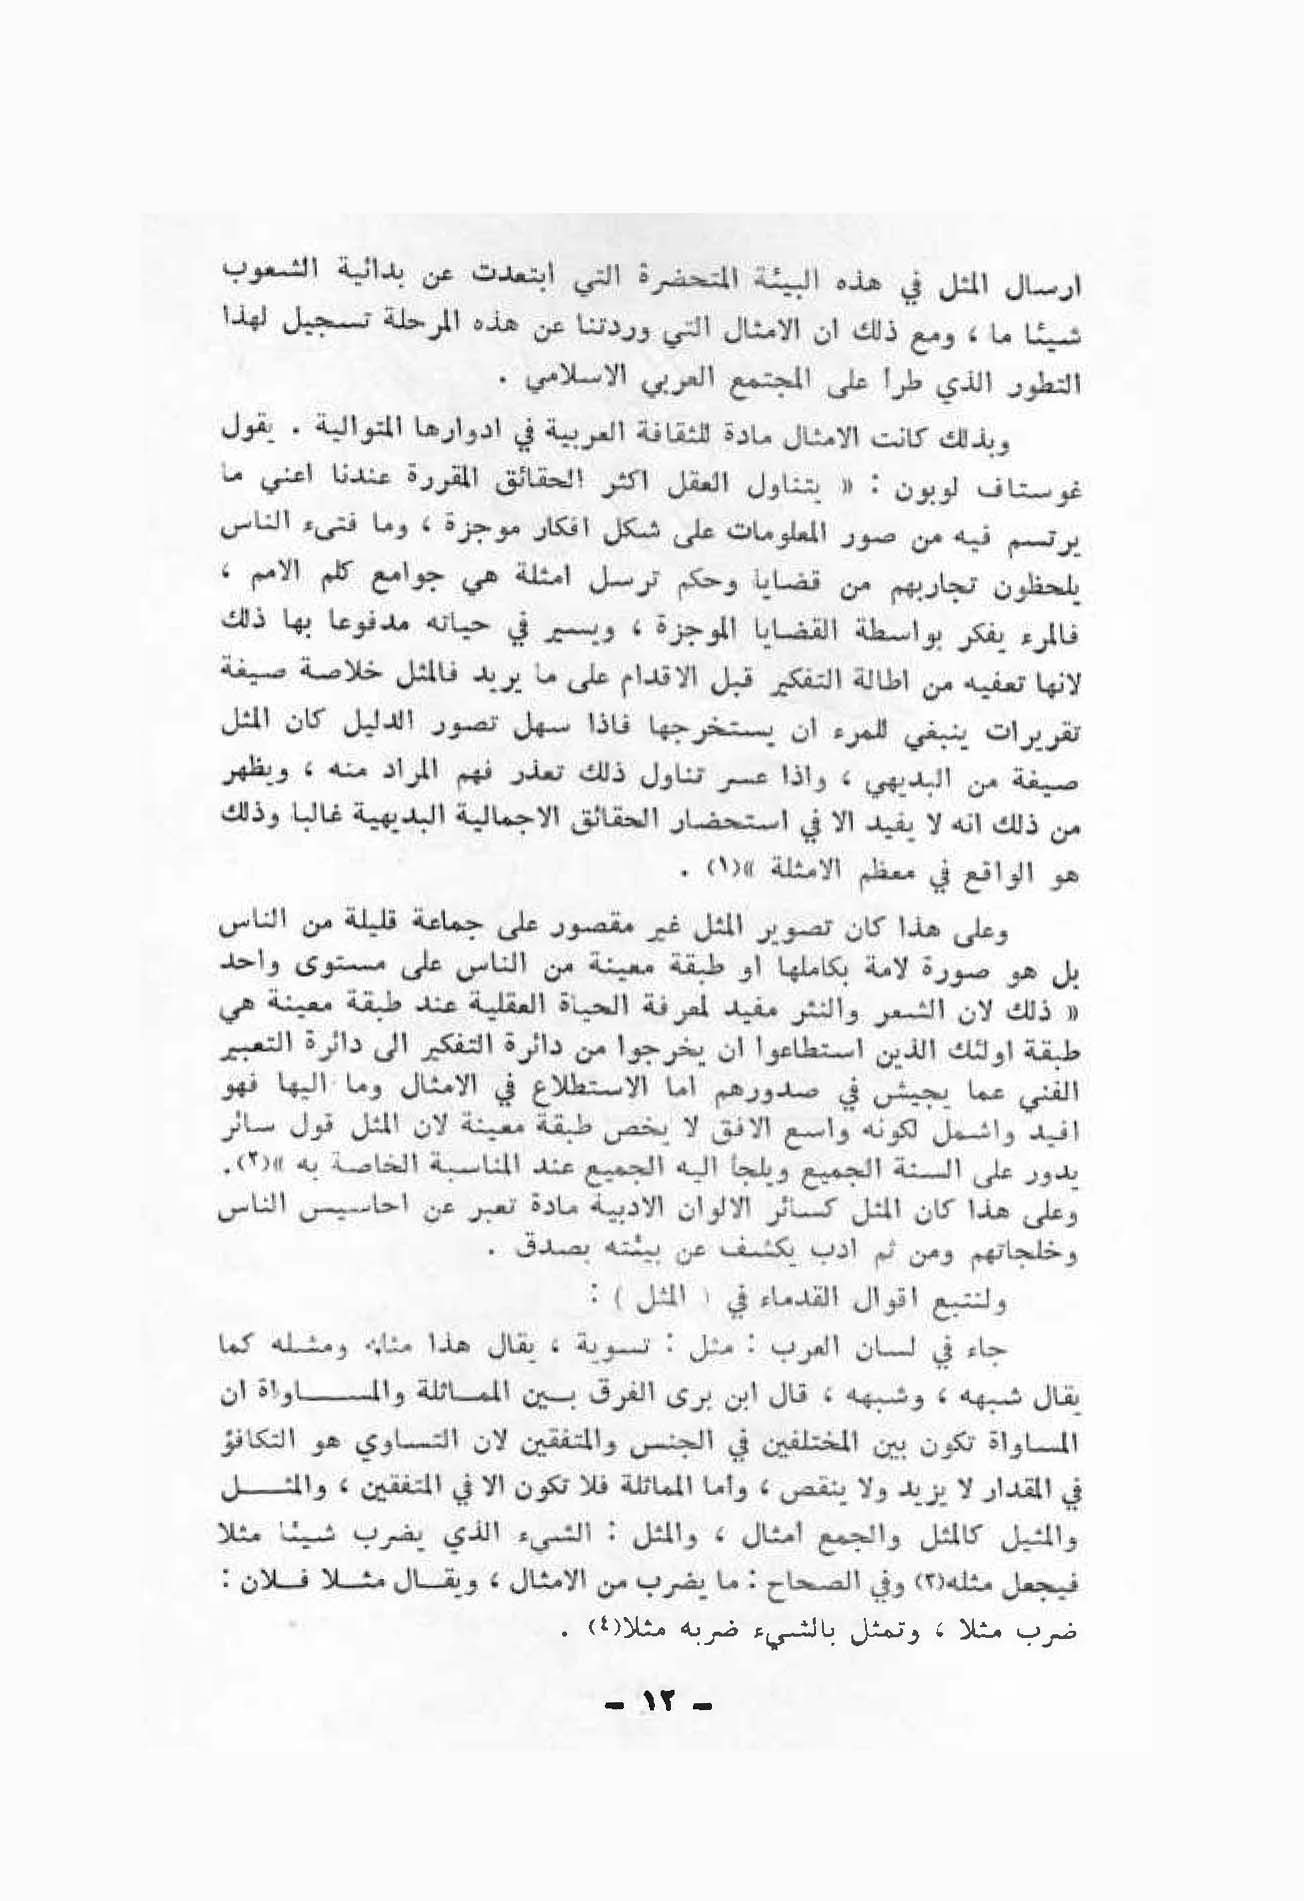 ارسال المثل في هذه البيئة المتحضرة التي ابتعدت عن بدائية الشعوب
شيئا ما ، ومع ذلك ان الامثال التي وردتنا عن هذه المرحلة تسجيل لهذا
التطور الذي طرأ على المجتمع العربي الاسلامي .
وبذلك كانت الامثال مادة للثقافة العربية في ادوارها المتوالية . يقول
غوستاف لوبون : « يتناول العقل اكثر الحقائق المقررة عندنا اعني ما
يرتسم فيه من صور المعلومات على شكل افكار موجزة ، وما فتىء الناس
يلحظون تجاربهم من قضايا وحكم ترسل امثلة هي جوامع كلم الامم ،
فالمرء يفكر بواسطة القضايا الموجزة ، ويسير في حياته مدفوعا بها ذلك
لانها تعفيه من اطالة التفكير قبل الاقدام على ما يريد فالمثل خلاصة صيغة
تقريرات ينبغي للمرء ان يستخرجها فاذا سهل تصور الدليل كان المثل
صيغة من البديهي ، واذا عسر تناول ذلك تعذر فهم المراد منه ، ويظهر
من ذلك انه لا يفيد الا في استحضار الحقائق الاجمالية البديهية غالبا وذلك
هو الواقع في معظم الامثلة »(١) .
وعلى هذا كان تصوير المثل غير مقصور على جماعة قليلة من الناس
بل هو صورة لامة بكاملها او طبقة معينة من الناس على مستوى واحد
« ذلك لان الشعر والنثر مفيد لمعرفة الحياة العقلية عند طبقة معينة هي
طبقة اولئك الذين استطاعوا ان يخرجوا من دائرة التفكير الى دائرة التعبير
الفني عما يجيش في صدورهم اما الاستطلاع في الامثال وما اليها فهو
افيد واشمل لكونه واسع الافق لا يخص طبقة معينة لان المثل قول سائر
يدور على السنة الجميع ويلجأ اليه الجميع عند المناسبة الخاصة به »(٢).
وعلى هذا كان المثل كسائر الالوان الادبية مادة تعبر عن احاسيس الناس
وخلجاتهم ومن ثم ادب يكشف عن بيئته بصدق .
ولنتتبع اقوال القدماء في ( المثل ) :
جاء في لسان العرب : مثل : تسوية ، يقال هذا مثله ومثله كما
يقال شبهه ، وشبهه ، قال ابن برى الفرق بين المماثلة والمساواة ان
المساواة تكون بين المختلفين في الجنس والمتفقين لان التساوي هو التكافؤ
في المقدار لا يزيد ولا ينقص ، وأما المماثلة فلا تكون الا في المتفقين ، والمثل
والمثيل كالمثل والجمع أمثال ، والمثل : الشيء الذي يضرب شيئا مثلا
فيجعل مثله(٣) وفي الصحاح : ما يضرب من الامثال ، ويقال مثلا فلان :
ضرب مثلا ، وتمثل بالشيء ضربه مثلا(٤) .
– ١٢ –